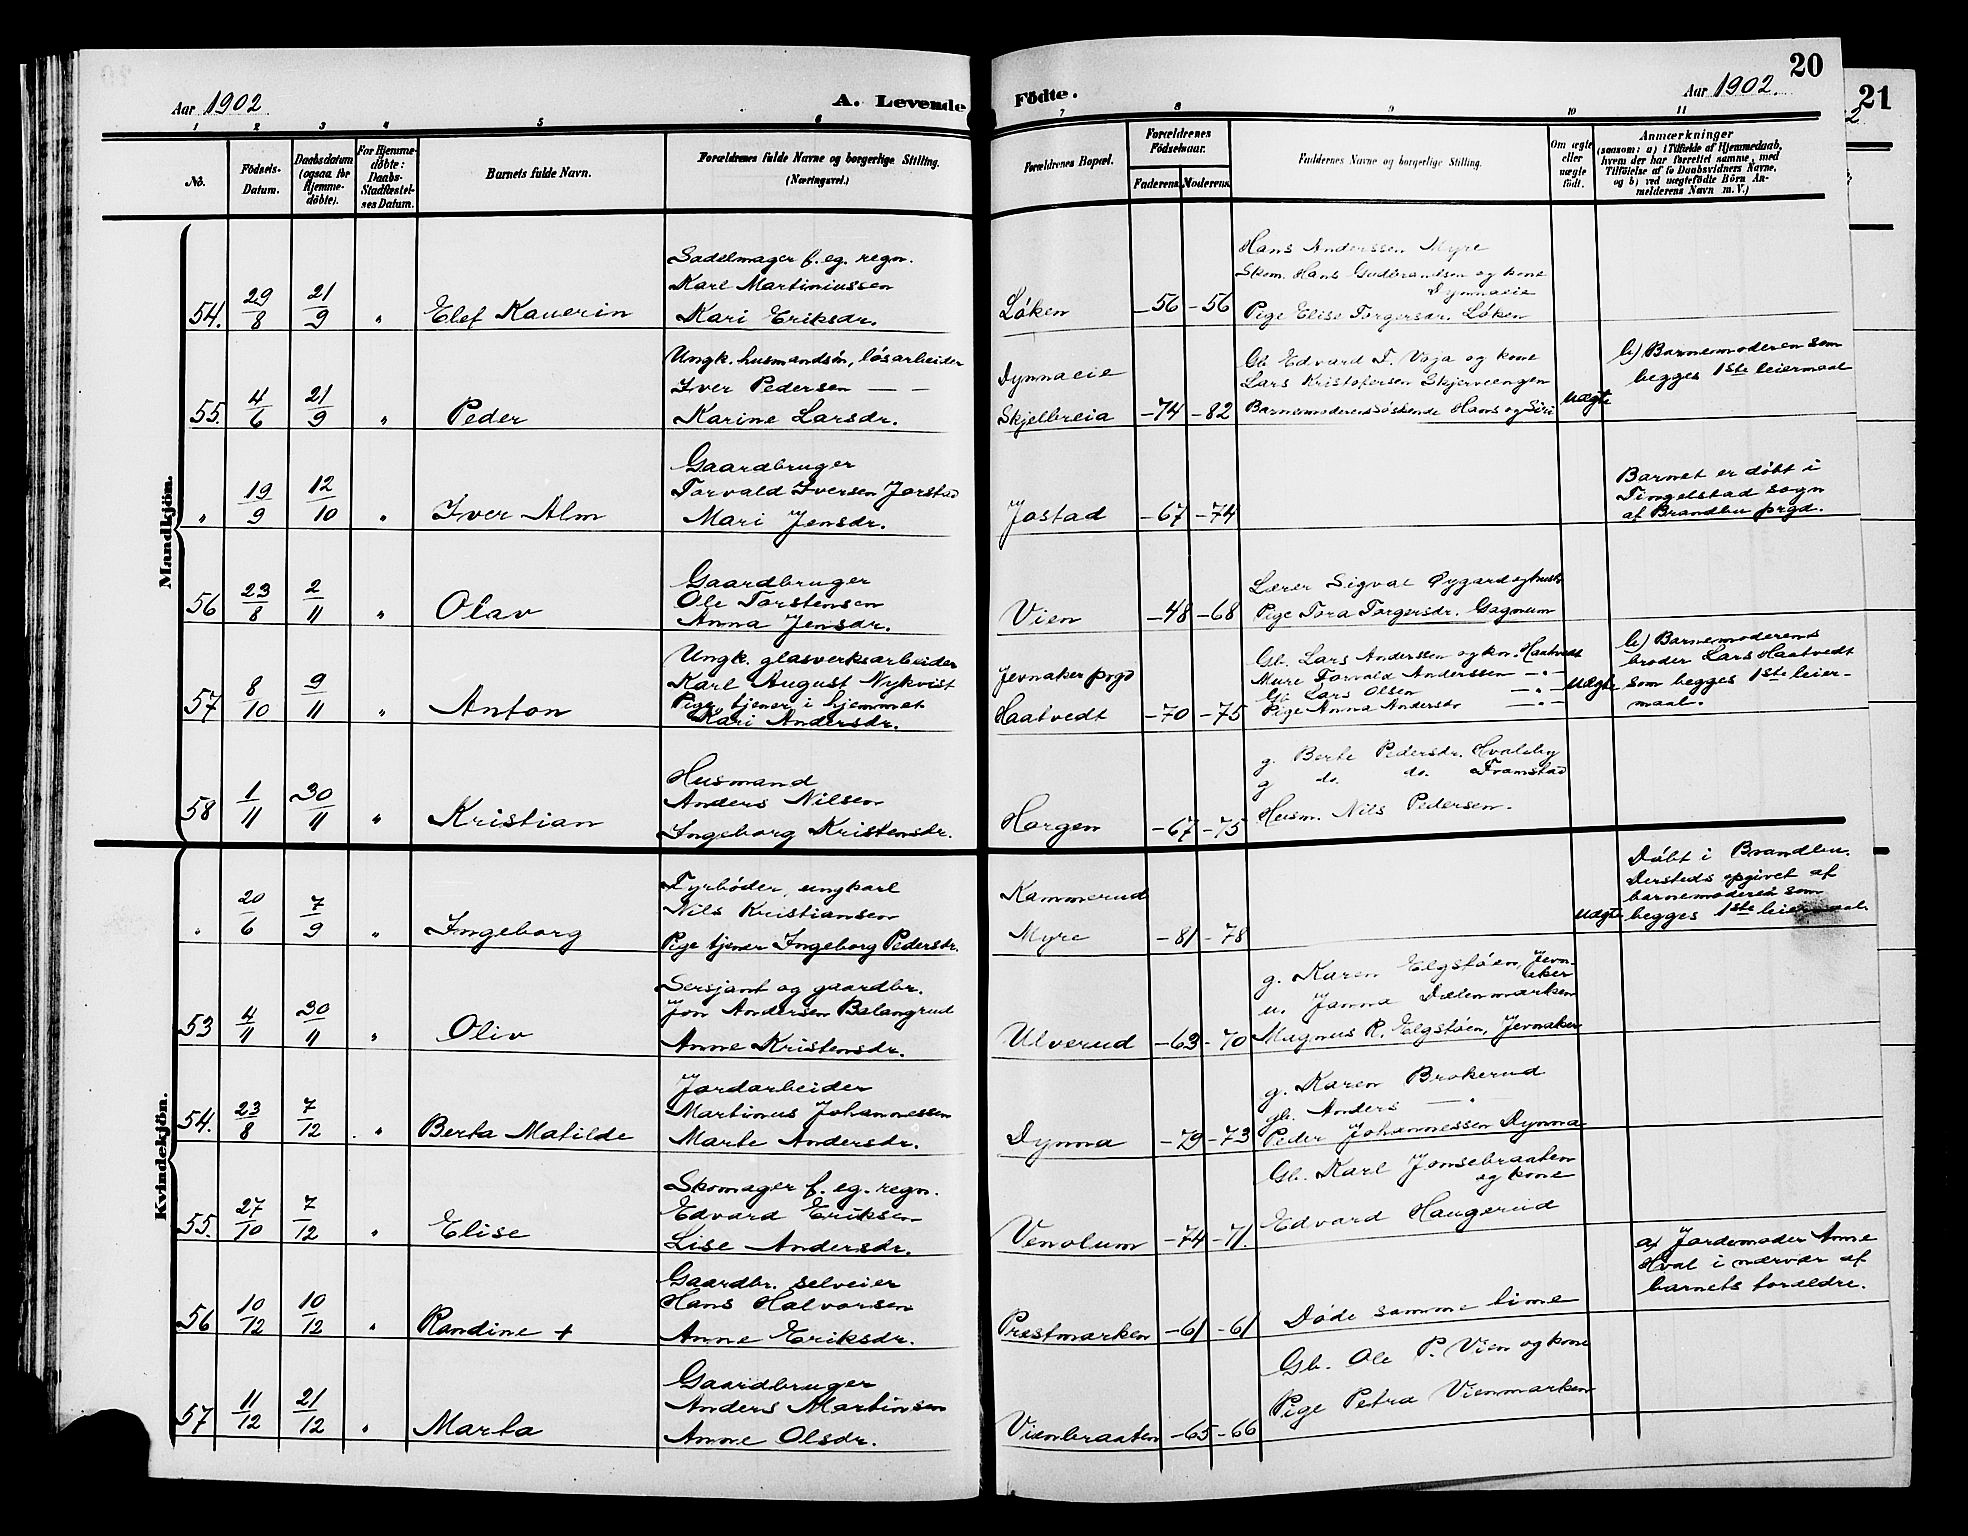 20
21
Aar 1902.
A. Levende Födte.
Aar 1902.
1 2 3 4 5 6 7 8 9 10 11
No.
Födsels-Datum.
Daabsdatum (ogsaa for Hjemme-döbte).
For Hjemme-döbte: Daabs-Stadfæstel-ses Datum.
Barnets fulde Navn.
Forældrenes fulde Navne og borgerlige Stilling.
(Næringsvei.)
Forældrenes Bopæl.
Forældrenes Födselsaar.
Faderens. Moderens.
Faddernes Navne og borgerlige Stilling.
Om ægte eller uægte födt.
Anmærkninger
(saasom: a) i Tilfælde af Hjemmedaab,
hvem der har forrettet samme, med
Tilföielse af to Daabsvidners Navne,
og b) ved uægtefödte Börn An-
melderens Navn m. V.)
Mandkjön.
Sadelmager f. eg. regn.
Karl Martiniussen
54. 29/8 21/9 " Elef Kauerin Kari Eriksdr. Løken -56 -56
Hans Anderssen Myre
Skom. Hans Gudbrandsen og kone
Dynnaeie
Pige Elise Torgersdr. Løken
Ungk. husmandsøn, løsarbeider
Iver Pedersen — — Dynnaeie
55. 4/6 21/9 " Peder Karine Larsdr. Skjelbreia -74 -82
Gb Edvard T. Voja og kone
Lars Kristofersen Skjerveengen
Barnemoderens søskende Hans og Siri
uægte
b) Barnemoderen som
begges 1ste leiermaal
Gaardbruger
Torvald Iversen Jorstad
" 19/9 12/10 " Iver Alm Mari Jensdr. Jostad -67 -74
Barnet er døbt i
Tingelstad sogn
af Brandbu prgd.
Gaardbruger
Ole Torstensen
56 23/8 2/11 " Olav Anna Jensdr. Vien -48 -68
Lærer Sigval Øygard og hustr
Pige Tora Torgersdr. Gagnum
Ungk. glasverksarbeider
Karl August Nykvist Jevnaker prgd
Pige, tjener i hjemmet
57 8/10 9/11 " Anton Kari Andersdr. Haatvedt -70 -75
Gb. Lars Anderssen og kon. Haatvedt
Mure Torvald Anderssen — " —
Gb Lars Olsen — " —
Pige Anna Andersdr — " —
uægte
b) Barnemoderens
broder Lars Haatvedt
som begges 1ste leier-
maal.
Husmand
Anders Nilsen
58 1/11 30/11 " Kristian Ingeborg Kristensdr. Horgen -67 -75
g. Berte Pedersdr. Hvaleby
g do. do. Framstad
Husm. Nils Pedersen.
Kvindekjön.
Fyrbøder, ungkarl
Nils Kristiansen Kammerud
" 20/6 7/9 " Ingeborg Pige tjener Ingeborg Pedersdr. Myre -81 -78
uægte
Døbt i Brandbu.
Dersteds opgivet af
barnemoderen som
begges 1ste leiermaal.
Sersjant og gaardbr.
Jon Andersen Balangrud
53 4/11 30/11 " Oliv Anne Kristensdr. Ulverud -63 -70
g. Karen Elgstøen, Jevn-
aker
u. Janna Dælenmarken
Magnus R. Elgstøen, Jevnaker
Jordarbeider
Martinus Johannessen
54. 23/8 7/12 " Berta Matilde Marte Andersdr. Dynna -79 -73
g. Karen Brokerud
gb. Anders — " —
Peder Johannessen Dynna
Skomager f. eg. regn.
Edvard Eriksen
55. 27/10 7/12 " Elise Lise Andersdr. Venolum -74 -71.
Gb. Karl Jonsebraaten
og kone
Edvard Haugerud
Gaardbr. selveier
Hans Halvorsen
56 10/12 10/12 " Randine + Anne Eriksdr. Præstmarken -61 -61
Døde samme time
a) Jordemoder Anne
Hval i nærvær af
barnets forældre.
Gaardbruger
Anders Martinsen
57 11/12 21/12 " Marta Anne Olsdr. Vienbraaten -65 -66
Gb. Ole P. Vien og kone
Pige Petra Vienmarken